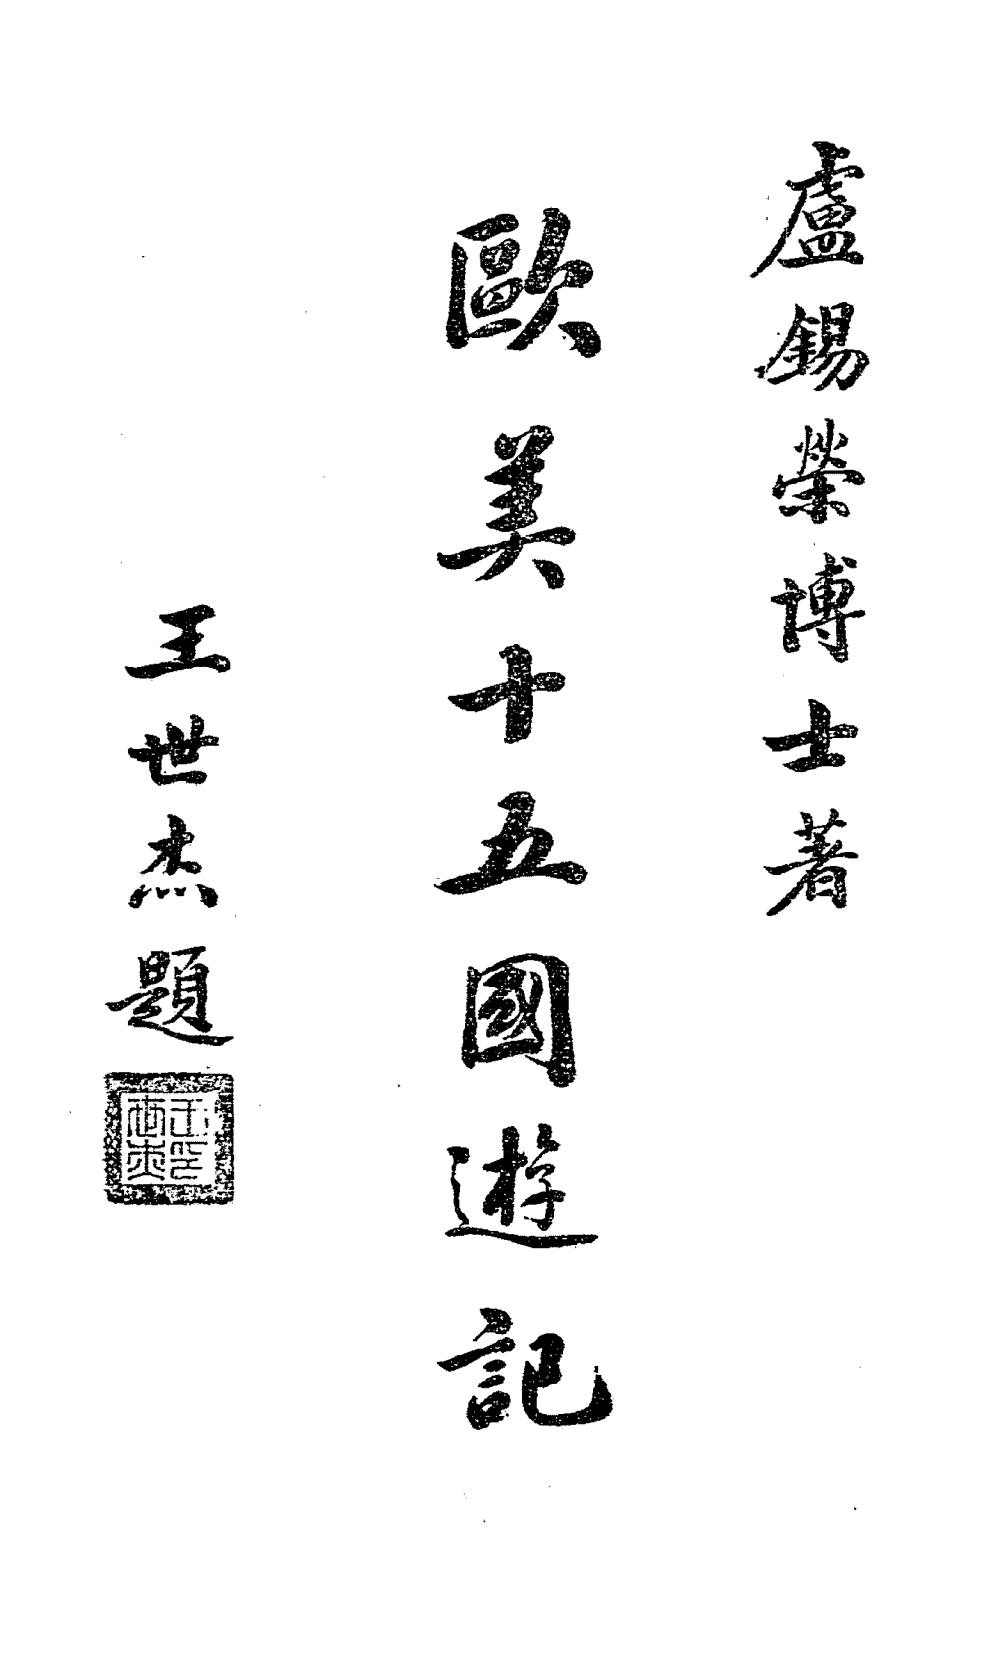 盧錫榮博士著
歐美十五國遊記
王世杰題